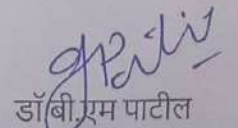 डॉ.बी.एम पाटील